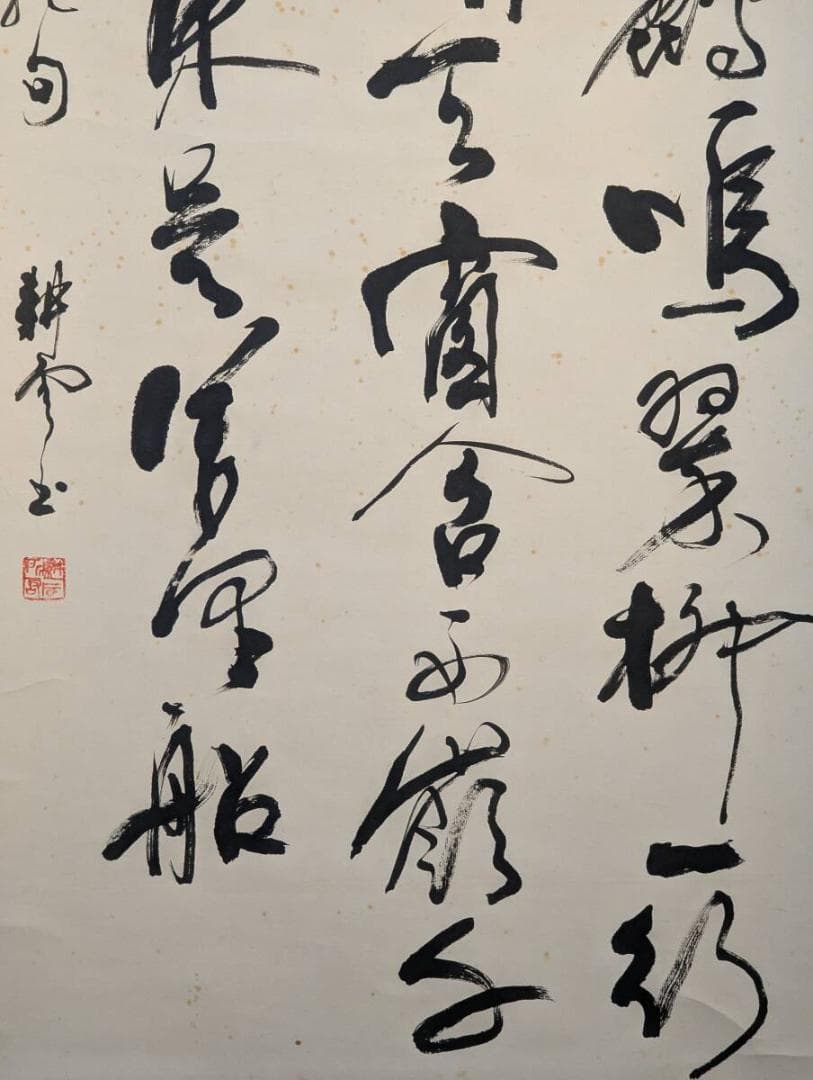 鸝鳴翠柳一行
天窗含西嶺千
東吳萬里船
句 耕雲書